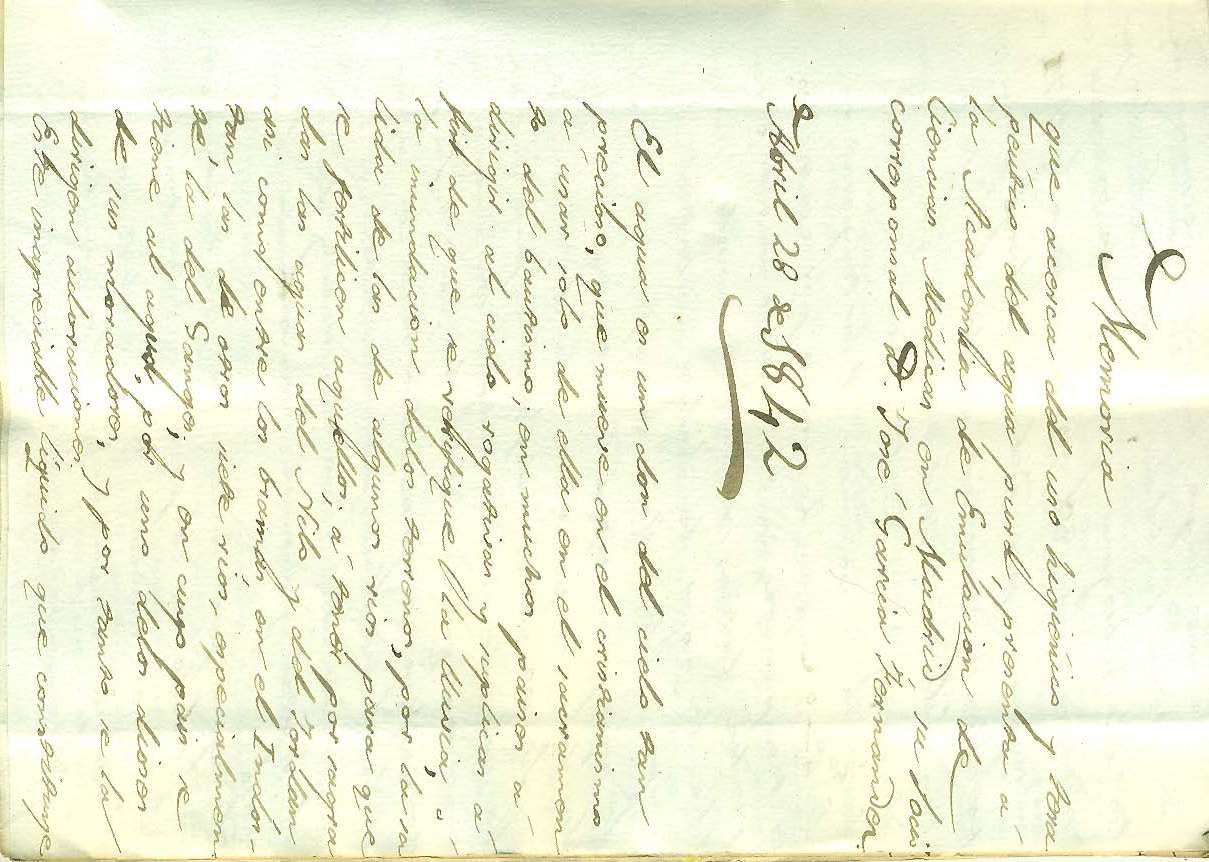 Memoria
que acerca del uso higiénico y tera
péutico del agua pura, presenta a
la Academia de Emulacion de
Ciencias Médicas en Madrid, su
corresponsal D. José Garcia
Abril 28 de 1842
El agua es un don del cielo tan
precioso, que muere en el cristianismo
a usar solo de ella en el sacramen
to del bautismo; en muchos paises a
dirigir al cielo rogativas y suplicas a
fin de que se verifique la lluvia, o
la inundacion de los terrenos, por la sa
lida de las de algunos rios para que
se fertilicen aquellos; a tener por sagra
das las aguas del Nilo y del Jordan
asi como entre los bramas en el Indos
tan las de otros siete rios, especialmen
te, la del Ganges; y en cuyo pais se
tiene al agua, por uno de los dioses
de sus moradores, y por tanto se la
dirigen adoraciones.
Este inapreciable líquido que constituye